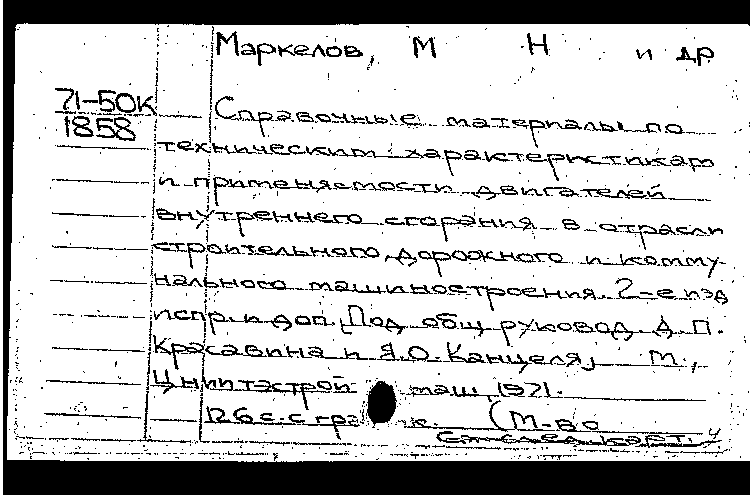 Маркелов, М Н и др
71-50К
1858
Справочные материалы по
техническим характеристикам
и применяемости двигателей
внутреннего сгорания в отрасли
строительного, дорожного и комму-
нального машиностроения. 2-е изд
испр. и доп. Под общ. руковод. А. П.
Красавина и Я. О. Канцеля, М.,
ЦНИИТЭстрой маш, 1971.
126 с. с (М-во
См. след. карт.